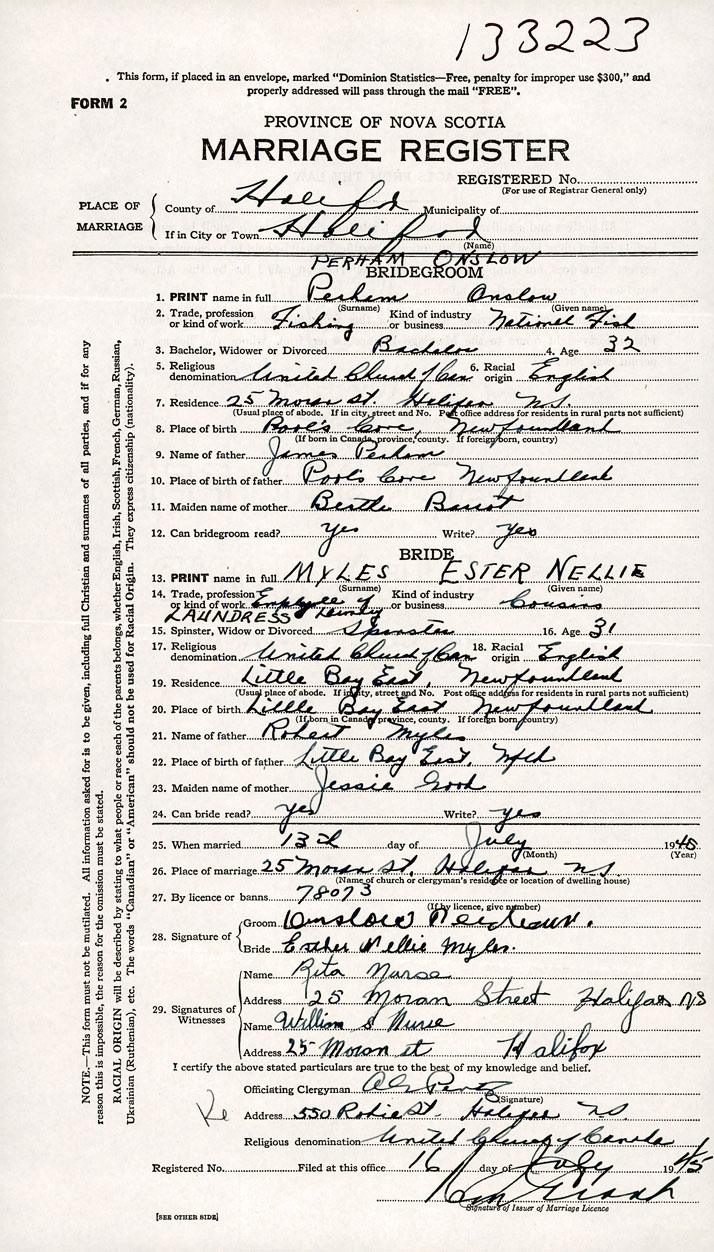 133223
This form, if placed in an envelope, marked "Dominion Statistics—Free, penalty for improper use $300," and
properly addressed will pass through the mail "FREE".
FORM 2
PROVINCE OF NOVA SCOTIA
MARRIAGE REGISTER
REGISTERED No.
(For use of Registrar General only)
PLACE OF MARRIAGE
County of Halifax Municipality of
If in City or Town Halifax
(Name)
PERHAM ONSLOW
BRIDEGROOM
1. PRINT name in full Perham Onslow
(Surname) (Given name)
2. Trade, profession or kind of work Fishing Kind of industry or business National Fish
3. Bachelor, Widower or Divorced Bachelor 4. Age 32
5. Religious denomination United Church of Can 6. Racial origin English
7. Residence 25 Moran St. Halifax N.S.
(Usual place of abode. If in city, street and No. Post office address for residents in rural parts not sufficient)
8. Place of birth Pool's Cove, Newfoundland
(If born in Canada, province, county. If foreign born, country)
9. Name of father James Perham
10. Place of birth of father Pool's Cove Newfoundland
11. Maiden name of mother
12. Can bridegroom read? yes Write? yes
BRIDE
13. PRINT name in full MYLES ESTER NELLIE
(Surname) (Given name)
14. Trade, profession or kind of work Employee of Laundry Kind of industry or business Cousins
LAUNDRESS
15. Spinster, Widow or Divorced Spinster 16. Age 31
17. Religious denomination United Church of Can 18. Racial origin English
19. Residence Little Bay East, Newfoundland
(Usual place of abode. If in city, street and No. Post office address for residents in rural parts not sufficient)
20. Place of birth Little Bay East Newfoundland
(If born in Canada, province, county. If foreign born, country)
21. Name of father Robert Myles
22. Place of birth of father Little Bay East, Nfld
23. Maiden name of mother Jessie
24. Can bride read? yes Write? yes
25. When married 13th day of July 1945
(Month) (Year)
26. Place of marriage 25 Moran St. Halifax N.S.
(Name of church or clergyman's residence or location of dwelling house)
27. By licence or banns 78073
(If by licence, give number)
28. Signature of
Groom Onslow
Bride Esther Nellie Myles.
29. Signatures of Witnesses
Name Rita Nurse
Address 25 Moran Street Halifax NS
Name William S Nurse
Address 25 Moran st Halifax
I certify the above stated particulars are true to the best of my knowledge and belief.
Officiating Clergyman
(Signature)
Address 550 Robie St. Halifax N.S.
Religious denomination United Church of Canada
Registered No. Filed at this office 16 day of July 1945
Signature of Issuer of Marriage Licence
[SEE OTHER SIDE]
NOTE.—This form must not be mutilated. All information asked for is to be given, including full Christian and surnames of all parties, and if for any
reason this is impossible, the reason for the omission must be stated.
RACIAL ORIGIN will be described by stating to what people or race each of the parents belongs, whether English, Irish, Scottish, French, German, Russian,
Ukrainian (Ruthenian), etc. The words "Canadian" or "American" should not be used for Racial Origin. They express citizenship (nationality).